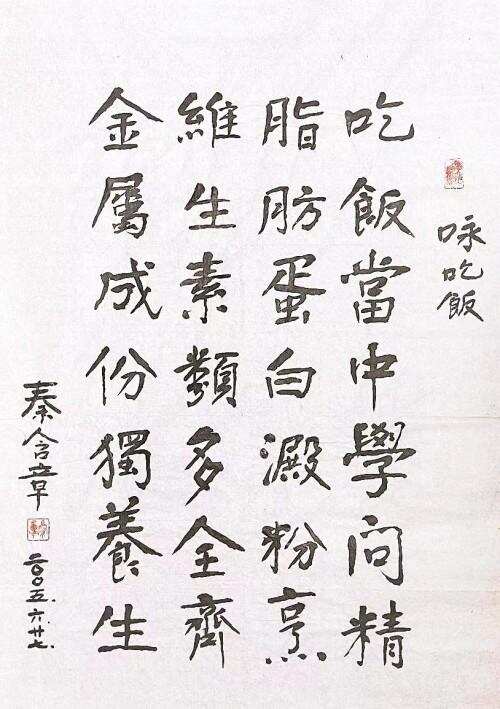 咏吃飯
吃飯當中學问精
脂肪蛋白澱粉烹
維生素類多全齊
金屬成份獨養生
秦含章
二〇〇五.六.廿七.